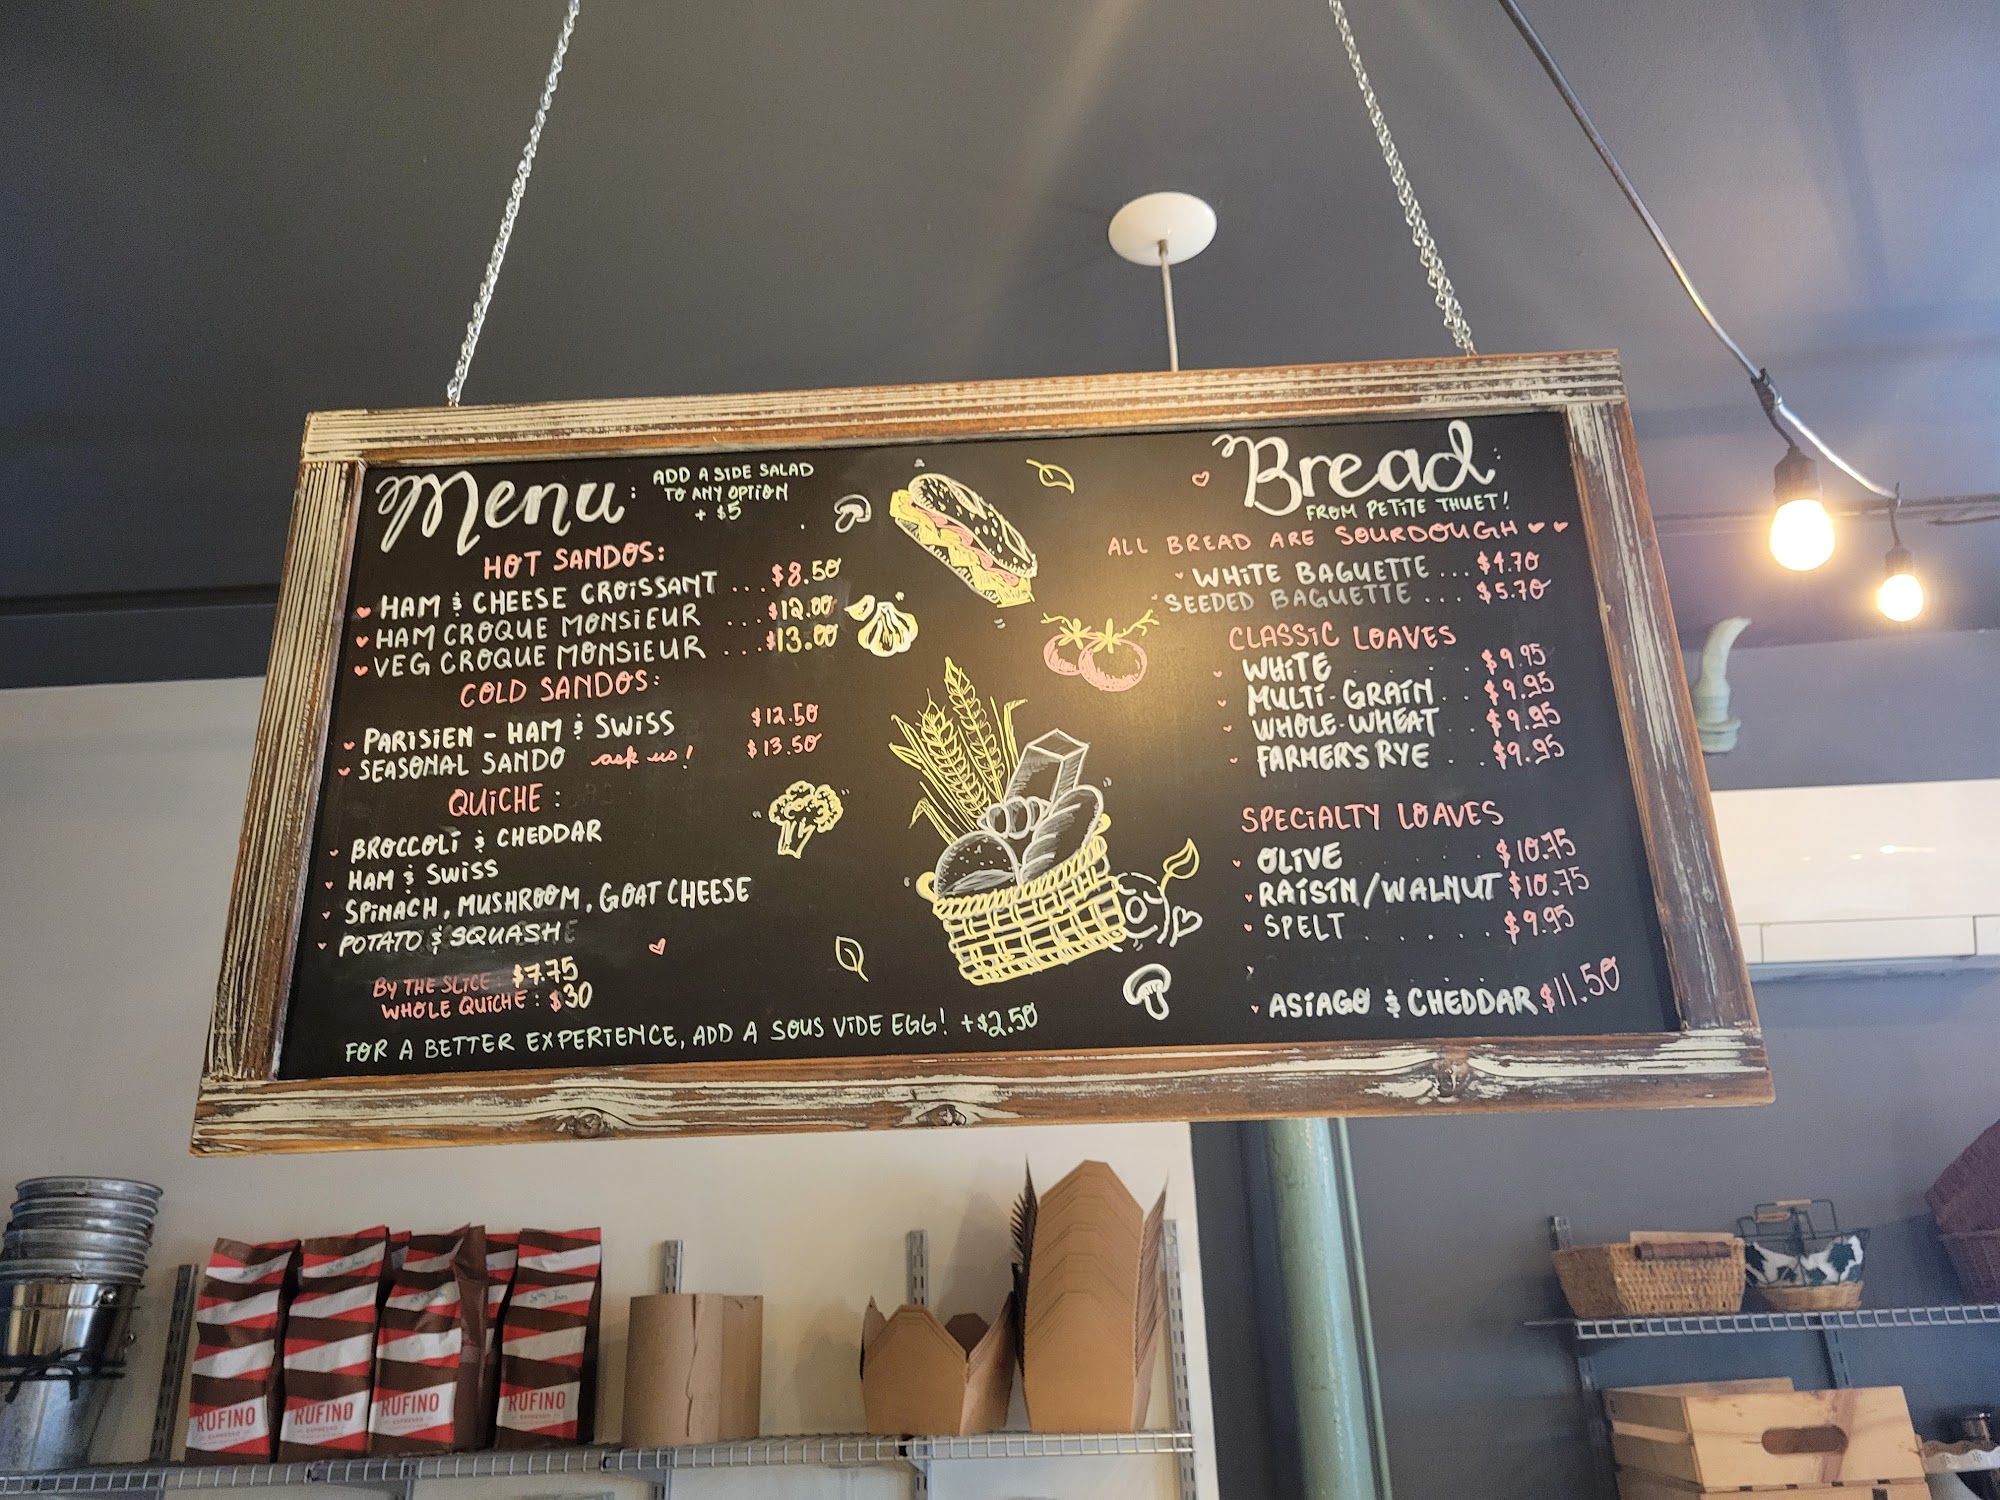 Menu:
ADD A SIDE SALAD
TO ANY OPTION
+ $5
HOT SANDOS:
HAM & CHEESE CROISSANT ... $8.50
HAM CROQUE MONSIEUR ... $12.00
VEG CROQUE MONSIEUR ... $13.00
COLD SANDOS:
PARISIEN - HAM & SWISS $12.50
SEASONAL SANDO ask us! $13.50
QUICHE:
BROCCOLI & CHEDDAR
HAM & SWISS
SPINACH, MUSHROOM, GOAT CHEESE
POTATO & SQUASH
BY THE SLICE: $7.75
WHOLE QUICHE: $30
FOR A BETTER EXPERIENCE, ADD A SOUS VIDE EGG! +$2.50
Bread:
FROM PETITE THUET!
ALL BREAD ARE SOURDOUGH
WHITE BAGUETTE ... $4.70
SEEDED BAGUETTE ... $5.70
CLASSIC LOAVES
WHITE . . . . . $9.95
MULTI-GRAIN . . $9.95
WHOLE-WHEAT . . $9.95
FARMER'S RYE . . $9.95
SPECIALTY LOAVES
OLIVE . . . . . $10.75
RAISIN/WALNUT $10.75
SPELT . . . . . . $9.95
ASIAGO & CHEDDAR $11.50
RUFINO
ESPRESSO
RUFINO
ESPRESSO
RUFINO
ESPRESSO
RUFINO
ESPRESSO